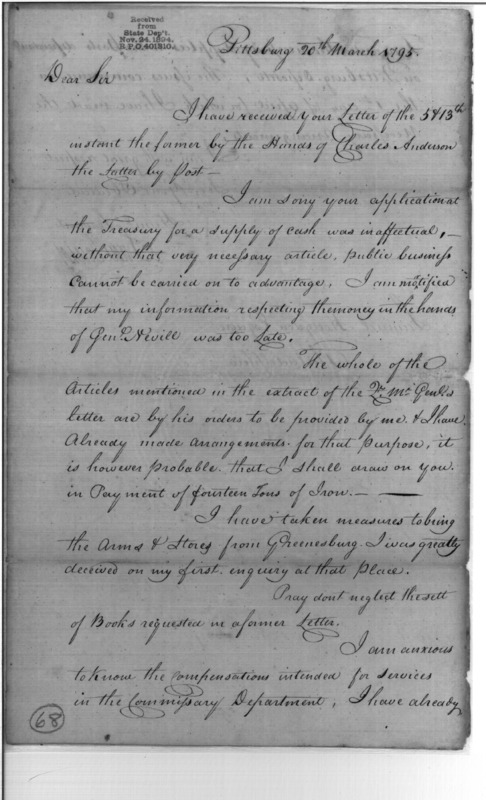 Received
from
State Dep't.
Nov. 24, 1894.
R.P.O. 401310.
Pittsburg 20th March 1795.
Dear Sir
I have received your Letter of the 5 & 13th
instant the former by the Hands of Charles Anderson
the Latter by Post —
I am sorry your application at
the Treasury for a supply of cash was ineffectual, —
without that very necessary article, public business
cannot be carried on to advantage, I am
that my information respecting the money in the hands
of Genl. Nevill was too Late.
The whole of the
Articles mentioned in the extract of the Qr. Mr. Genls
letter are by his orders to be provided by me & I have
Already made arrangements for that purpose, it
is however probable that I shall draw on you
in Payment of fourteen Tons of Iron. — —
I have taken measures to bring
the Arms & Stores from Greenesburg. I was greatly
deceived on my first enquiry at that Place.
Pray dont neglect the sett
of Book's requested in a former Letter.
I am anxious
to know the compensations intended for services
in the Commissary Department, I have already
68